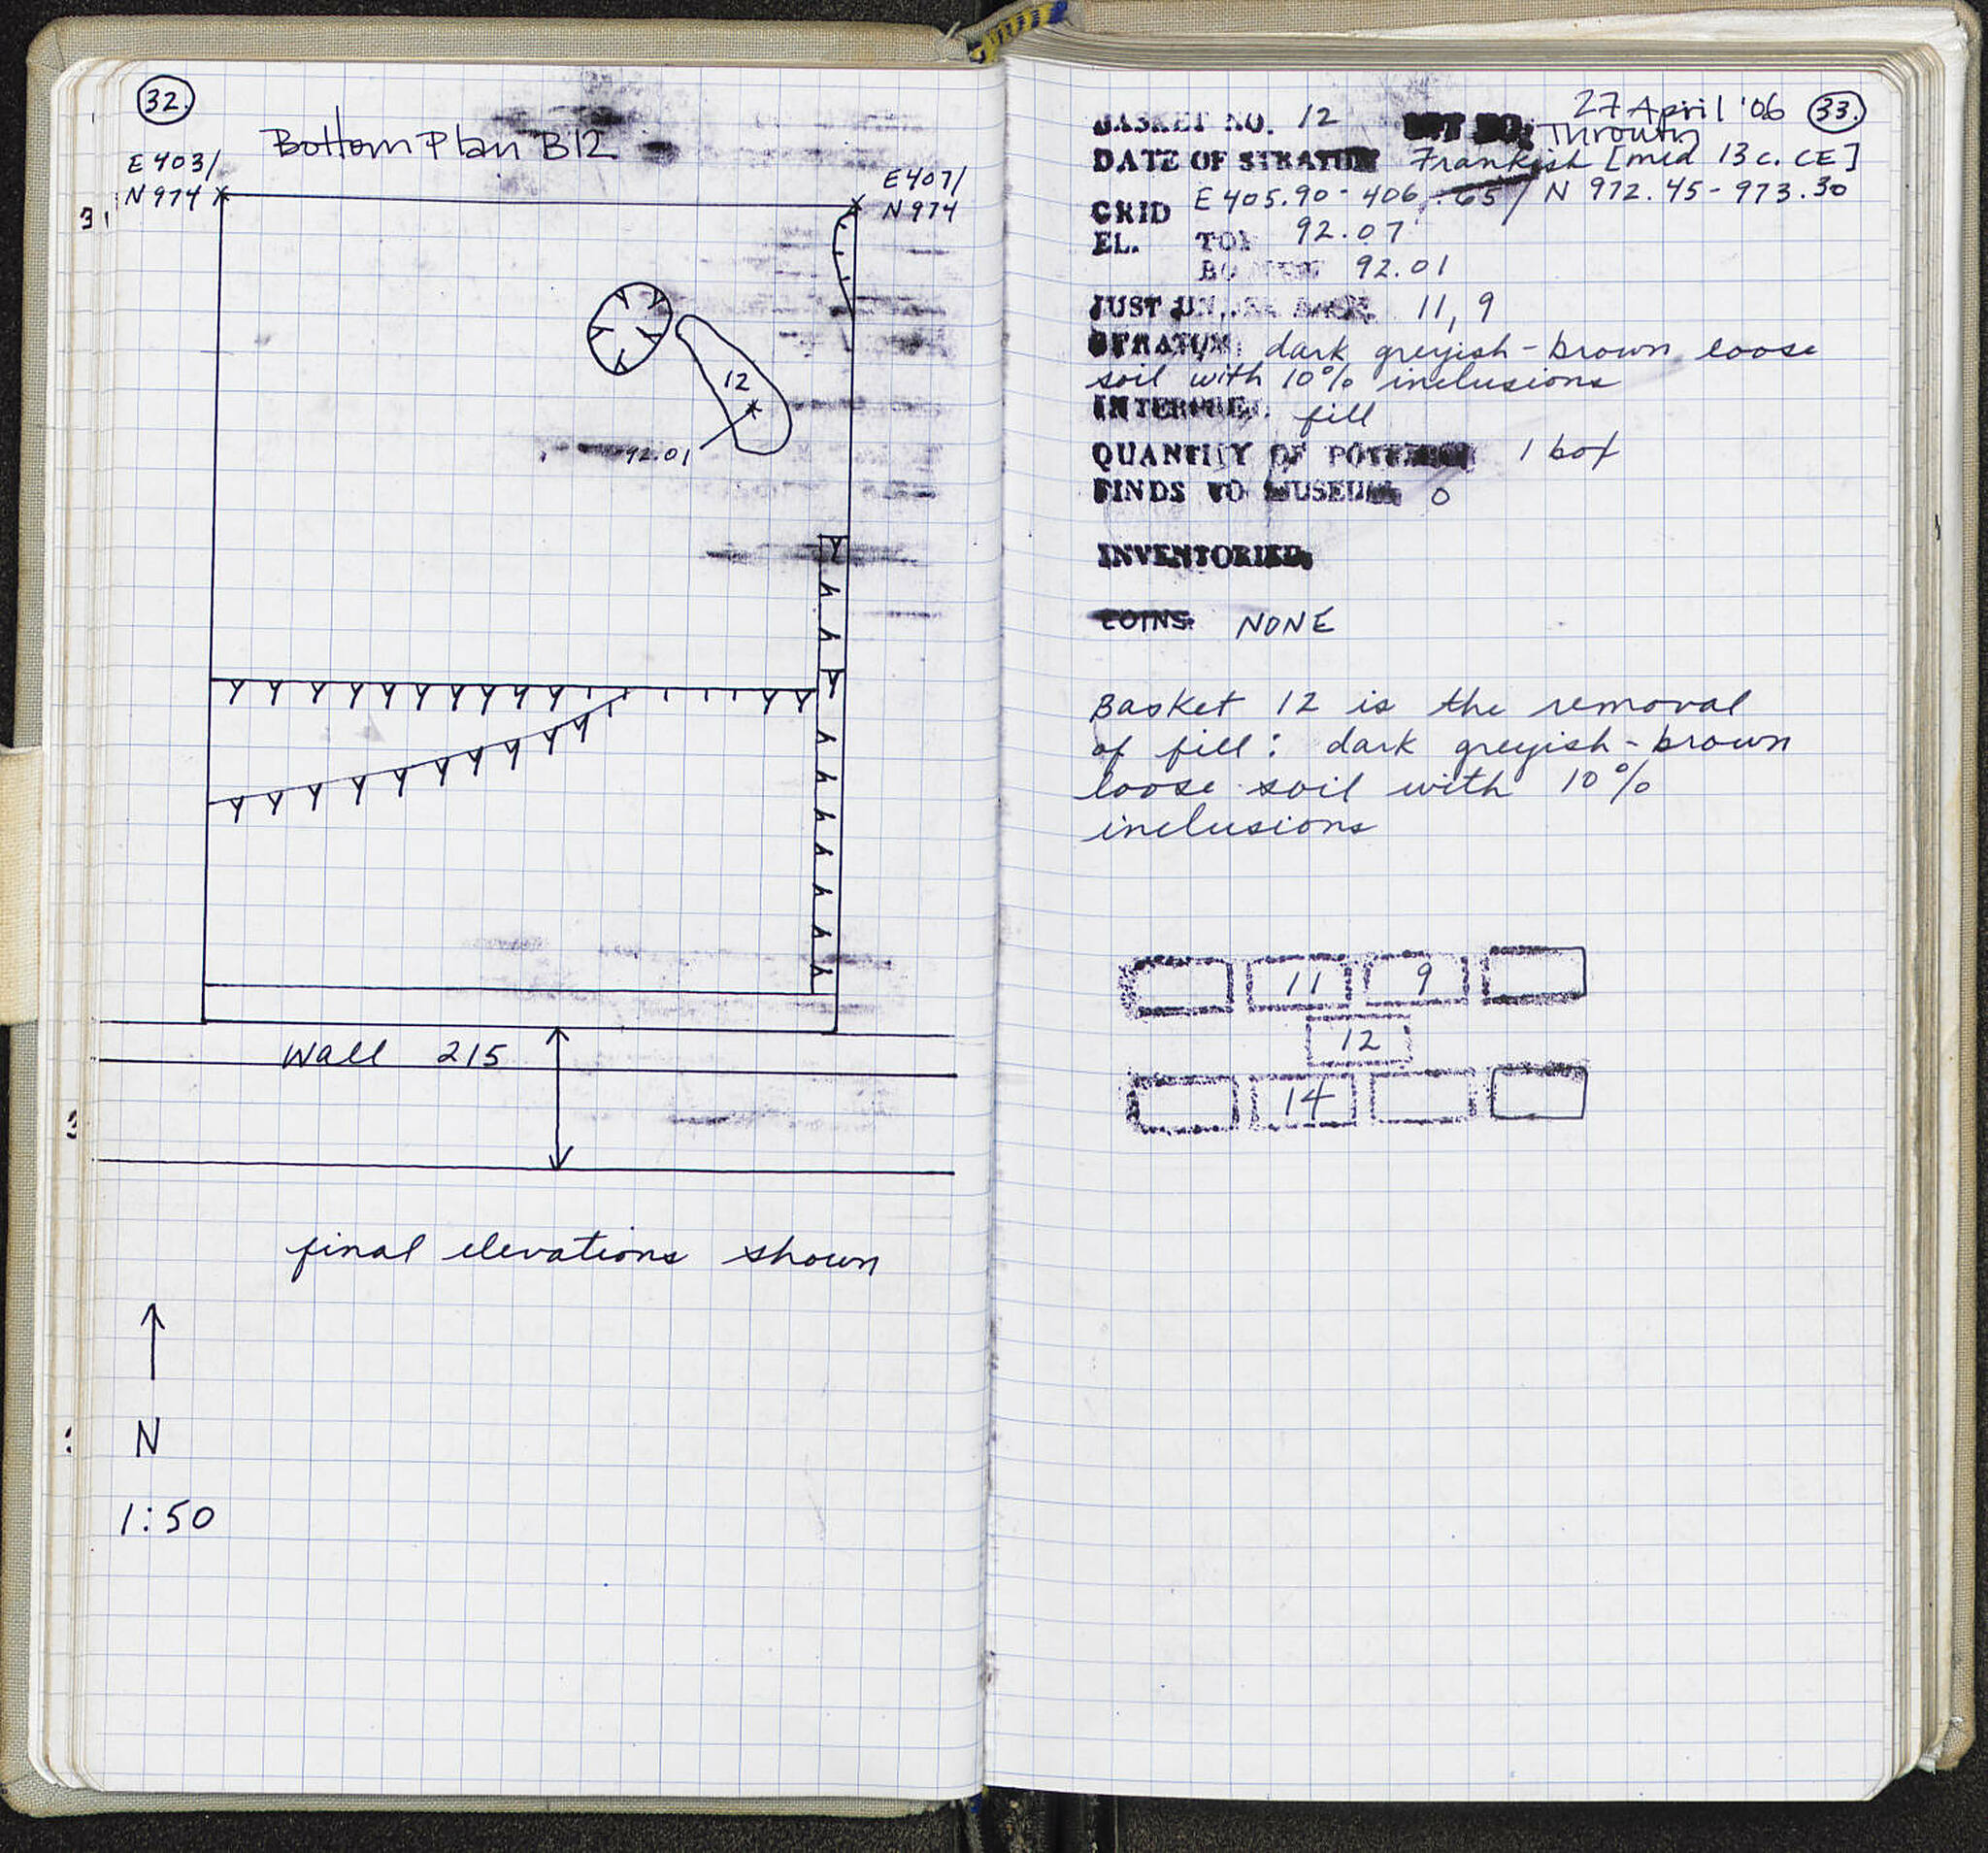 32.
Bottom Plan B12
E 403/
N 974
E 407/
N 974
12
92.01
Wall 215
final elevations shown
N
1:50
27 April '06 33.
BASKET NO. 12
DATE OF STRATUM Frankish [mid 13 c. CE]
GRID E 405.90 - 406.65 / N 972.45 - 973.30
EL. TOP 92.07
BOTTOM 92.01
JUST UNDER BASK. 11, 9
STRATUM: dark greyish-brown loose
soil with 10% inclusions
INTERPRET. fill
QUANTITY OF POTTERY 1 box
FINDS TO MUSEUM 0
INVENTORIED
COINS: NONE
Basket 12 is the removal
of fill: dark greyish-brown
loose soil with 10%
inclusions
11 9
12
14